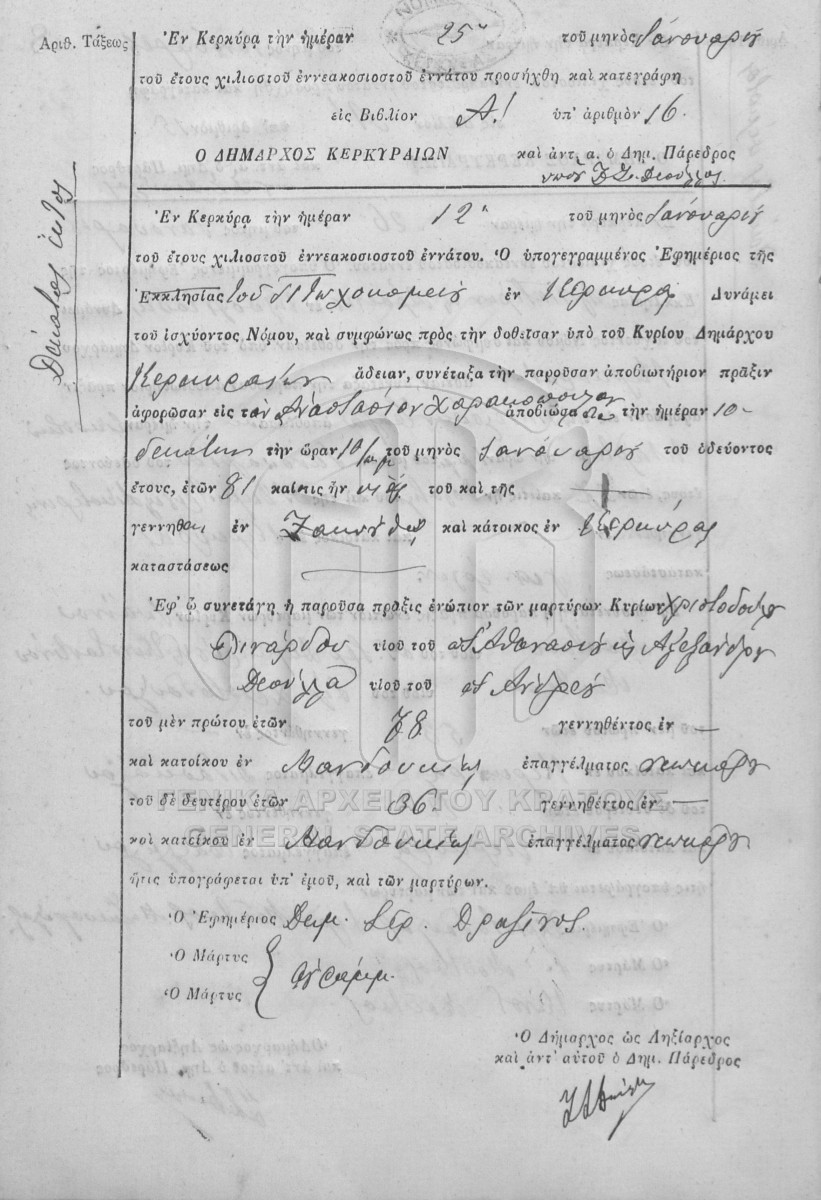 Ἀριθ. Τάξεως
Ἐν Κερκύρᾳ τὴν ἡμέραν 25ην τοῦ μηνὸς Ἰανουαρίου
τοῦ ἔτους χιλιοστοῦ ἐννεακοσιοστοῦ ἐννάτου προσήχθη καὶ κατεγράφη
εἰς Βιβλίον Α! ὑπ' ἀριθμὸν 16.
Ο ΔΗΜΑΡΧΟΣ ΚΕΡΚΥΡΑΙΩΝ καὶ ἀντ. α. ὁ Δημ. Πάρεδρος
Δέκατος ἕκτος
Ἐν Κερκύρᾳ τὴν ἡμέραν 12η τοῦ μηνὸς Ἰανουαρίου
τοῦ ἔτους χιλιοστοῦ ἐννεακοσιοστοῦ ἐννάτου. Ὁ ὑπογεγραμμένος Ἐφημέριος τῆς
Ἐκκλησίας τοῦ Πτωχοκομείου ἐν Κέρκυρᾳ Δυνάμει
τοῦ ἰσχύοντος Νόμου, καὶ συμφώνως πρὸς τὴν δοθεῖσαν ὑπὸ τοῦ Κυρίου Δημάρχου
Κερκυραίων ἄδειαν, συνέταξα τὴν παροῦσαν ἀποβιωτήριον πρᾶξιν
ἀφορῶσαν εἰς τὸν Ἀναστάσιον Χαρακόπουλον ἀποβιώσαντα τὴν ἡμέραν 10-
δεκάτην τὴν ὥραν 10 π.μ. τοῦ μηνὸς Ἰανουαρίου τοῦ ὁδεύοντος
ἔτους, ἐτῶν 81 καὶ τις ἦν υἱὸς τοῦ καὶ τῆς
γεννηθεὶς ἐν Ζακύνθῳ καὶ κάτοικος ἐν Κερκύρας
καταστάσεως
Ἐφ' ᾧ συνετάγη ἡ παροῦσα πρᾶξις ἐνώπιον τῶν μαρτύρων Κυρίων Χριστοδούλου
Λινάρδου υἱοῦ τοῦ Ἀθανασίου κ Ἀλεξάνδρου
Δεσύλλα υἱοῦ τοῦ Ἀνδρέου
τοῦ μὲν πρώτου ἐτῶν 78 γεννηθέντος ἐν —
καὶ κατοίκου ἐν Μανδουκίου ἐπαγγέλματος
τοῦ δὲ δευτέρου ἐτῶν 36. γεννηθέντος ἐν —
καὶ κατοίκου ἐν Μανδουκίου ἐπαγγέλματος
ἥτις ὑπογράφεται ὑπ' ἐμοῦ, καὶ τῶν μαρτύρων.
Ὁ Ἐφημέριος Δημ. Σερ.
Ὁ Μάρτυς
Ὁ Μάρτυς
Ὁ Δήμαρχος ὡς Ληξίαρχος
καὶ ἀντ' αὐτοῦ ὁ Δημ. Πάρεδρος
ΓΕΝΙΚΑ ΑΡΧΕΙΑ ΤΟΥ ΚΡΑΤΟΥΣ
GENERAL STATE ARCHIVES